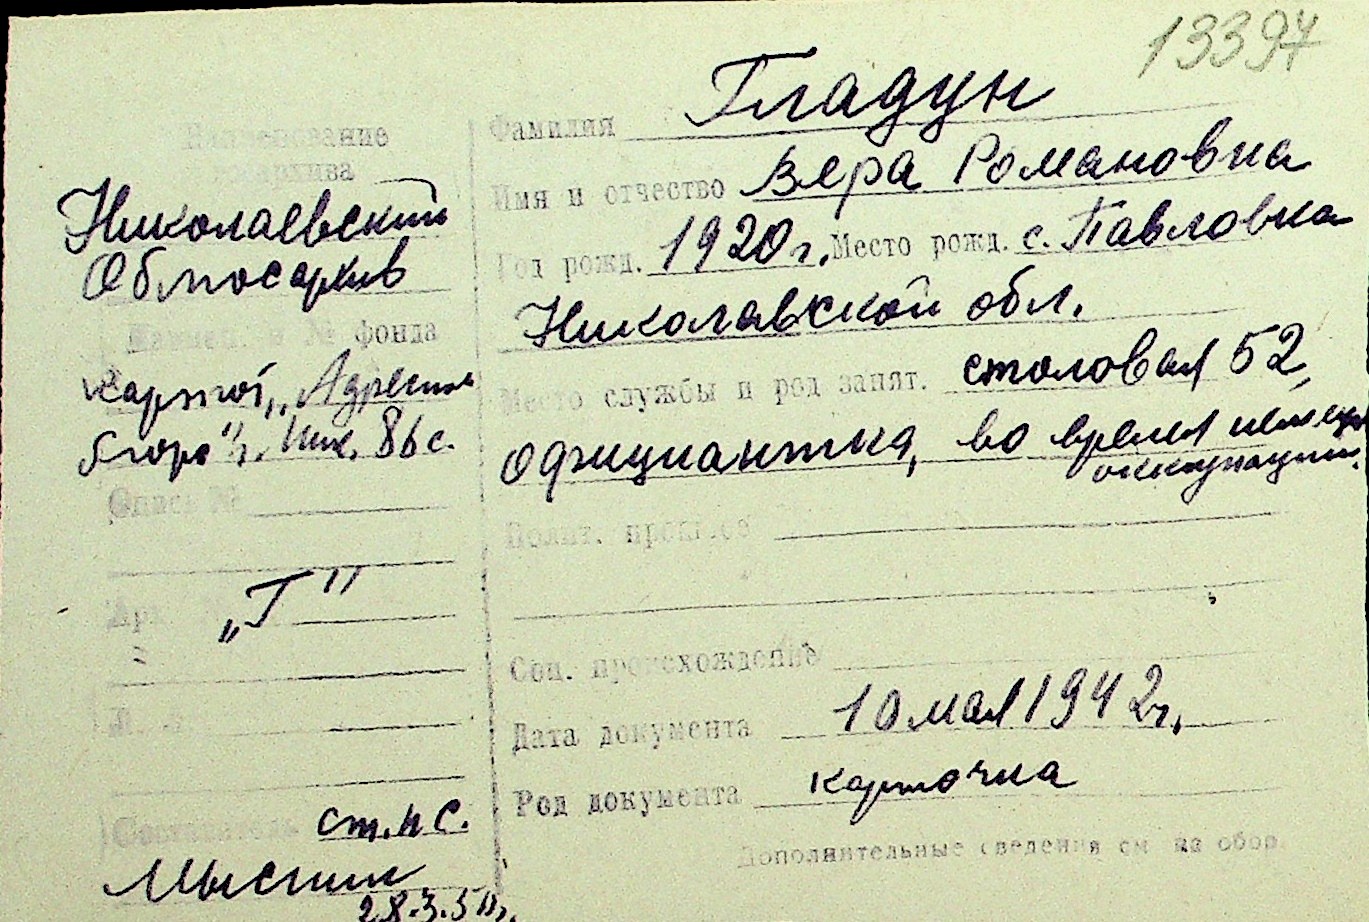 13397
Наименование
госархива
Николаевский
Облгосархив
№ фонда
картот. „Адресн.
бюро" г. Ник. 86 с.
Опись №
Арх. №
„Г"
Составитель ст. н. с.
28.3.50 г.
Фамилия Гладун
Имя и отчество Вера Романовна
Год рожд. 1920 г. Место рожд. с. Павловка
Николаевской обл.
Место службы и род занят. столовая 52,
официантка, во время немецк.
оккупации.
Полит. прошлое
Соц. происхождение
Дата документа 10 мая 1942 г.
Род документа карточка
Дополнительные сведения см. на обор.